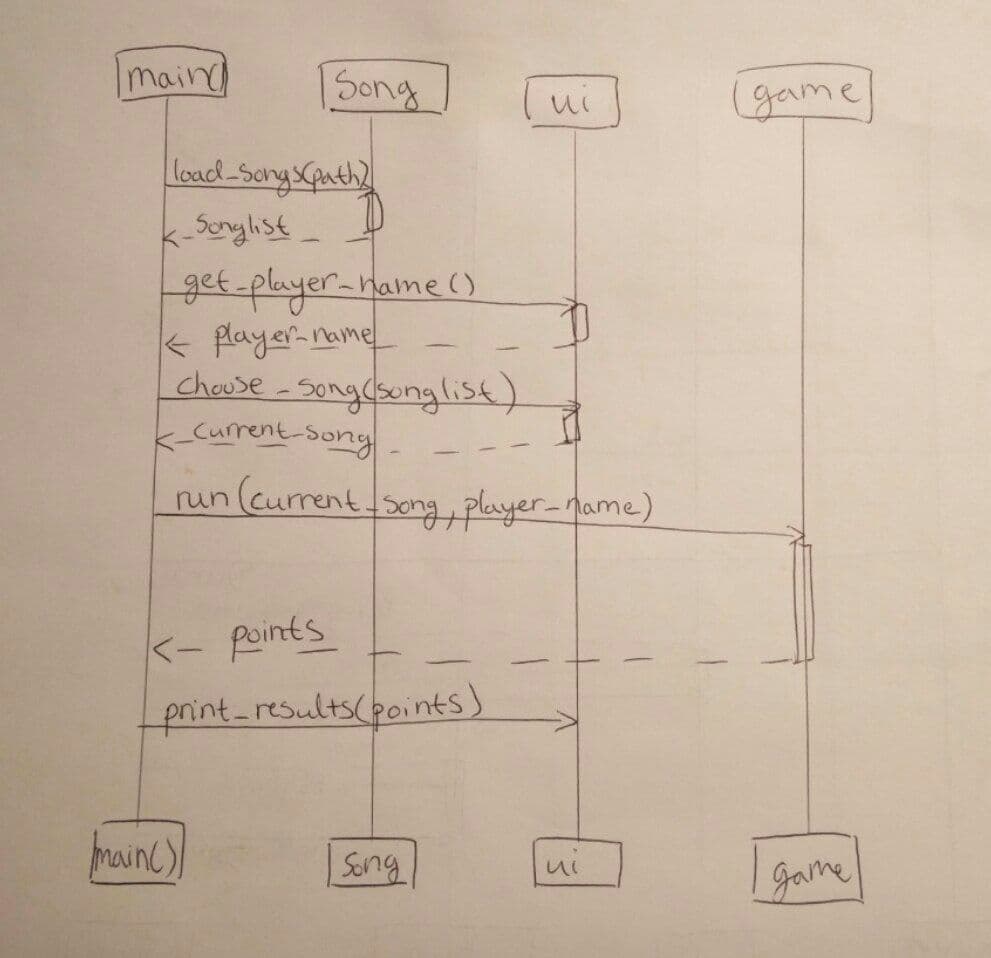 main()
Song
ui
game
load_songs(path)
songlist
get_player_name()
player_name
choose_song(songlist)
current_song
run(current_song, player_name)
points
print_results(points)
main()
song
ui
game